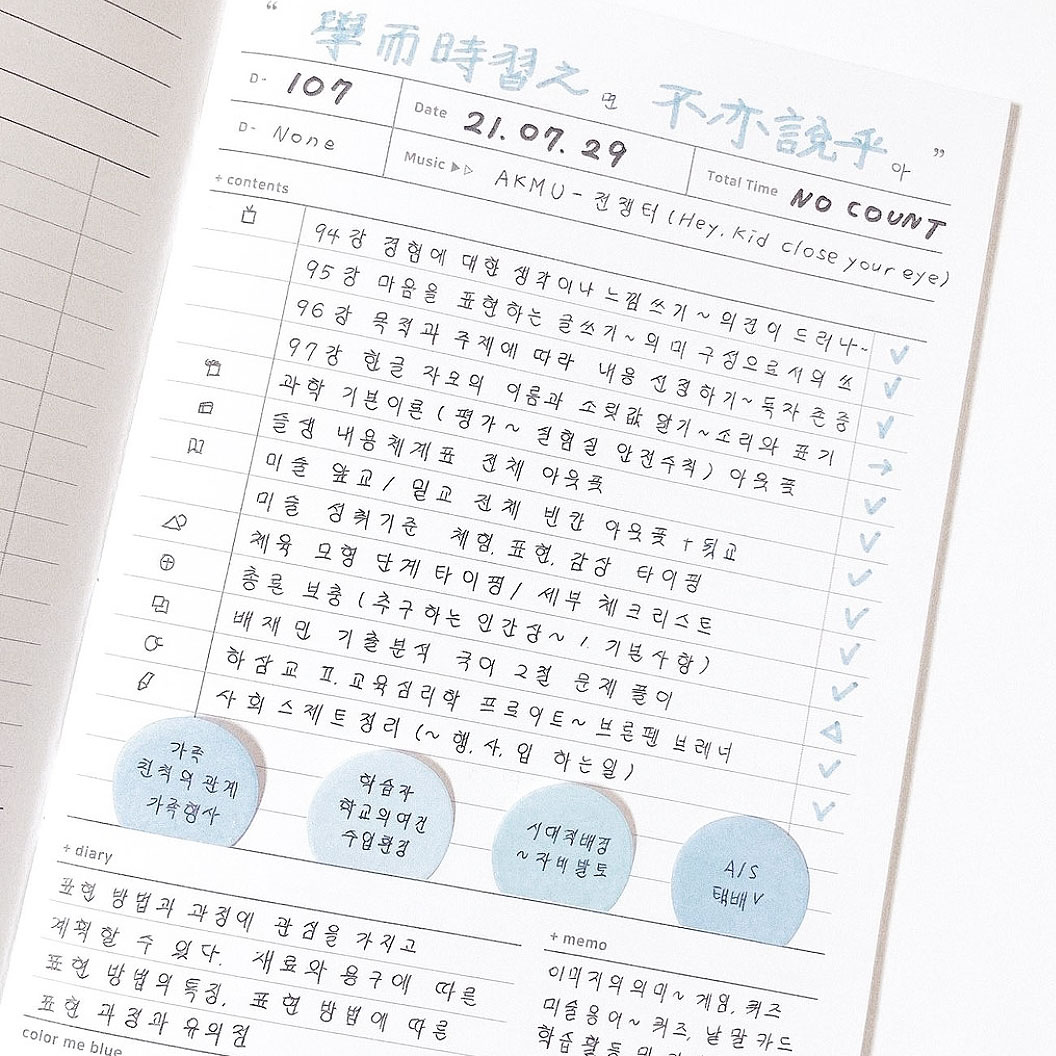 “ 學而時習之면 不亦說乎아 ”
D- 107 Date 21. 07. 29 Total Time NO COUNT
D- None Music ▶▷ AKMU - 전쟁터 (Hey, Kid close your eye)
+ contents
94강 경험에 대한 생각이나 느낌 쓰기 ~ 의견이 드러나~ ✓
95강 마음을 표현하는 글쓰기 ~ 의미 구성으로서의 쓰 ✓
96강 목적과 주제에 따라 내용 선정하기 ~ 독자 존중 ✓
97강 한글 자모의 이름과 소릿값 알기 ~ 소리와 표기 →
과학 기본이론 ( 평가 ~ 실험실 안전수칙 ) 아웃풋 ✓
슬생 내용체계표 전체 아웃풋 ✓
미술 앞교 / 밑교 전체 빈칸 아웃풋 + 뒷교 ✓
미술 성취기준 체험, 표현, 감상 타이핑 ✓
체육 모형 단계 타이핑 / 세부 체크리스트 ✓
총론 보충 ( 추구하는 인간상 ~ 1. 기본사항 ) ✓
배재민 기출분석 국어 2절 문제 풀이 △
하삼교 Ⅱ. 교육심리학 프로이트 ~ 브론펜 브레너 ✓
사회 스제트 정리 ( ~ 행. 사. 입 하는 일 ) ✓
가족
친척의 관계
가족행사
학습자
학교의 여건
수업환경
시대적배경
~ 자비발토
A/S
택배 V
+ diary
표현 방법과 과정에 관심을 가지고
계획할 수 있다. 재료와 용구에 따른
표현 방법의 특징, 표현 방법에 따른
표현 과정과 유의점
color me blue
+ memo
이미지의 의미 ~ 게임, 퀴즈
미술용어 ~ 퀴즈, 낱말카드
학습 활동 및